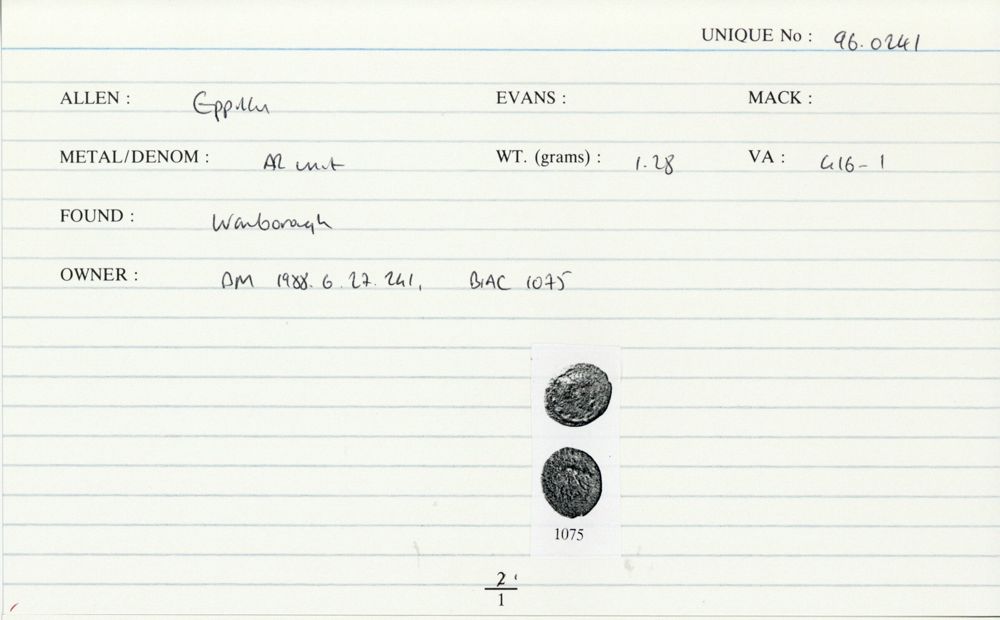 UNIQUE No : 96.0241
ALLEN : Eppillu EVANS : MACK :
METAL/DENOM : AR unit WT. (grams) : 1.28 VA : 416-1
FOUND : Wanborough
OWNER : BM 1988.6.27.241, BIAC 1075
1075
2
1